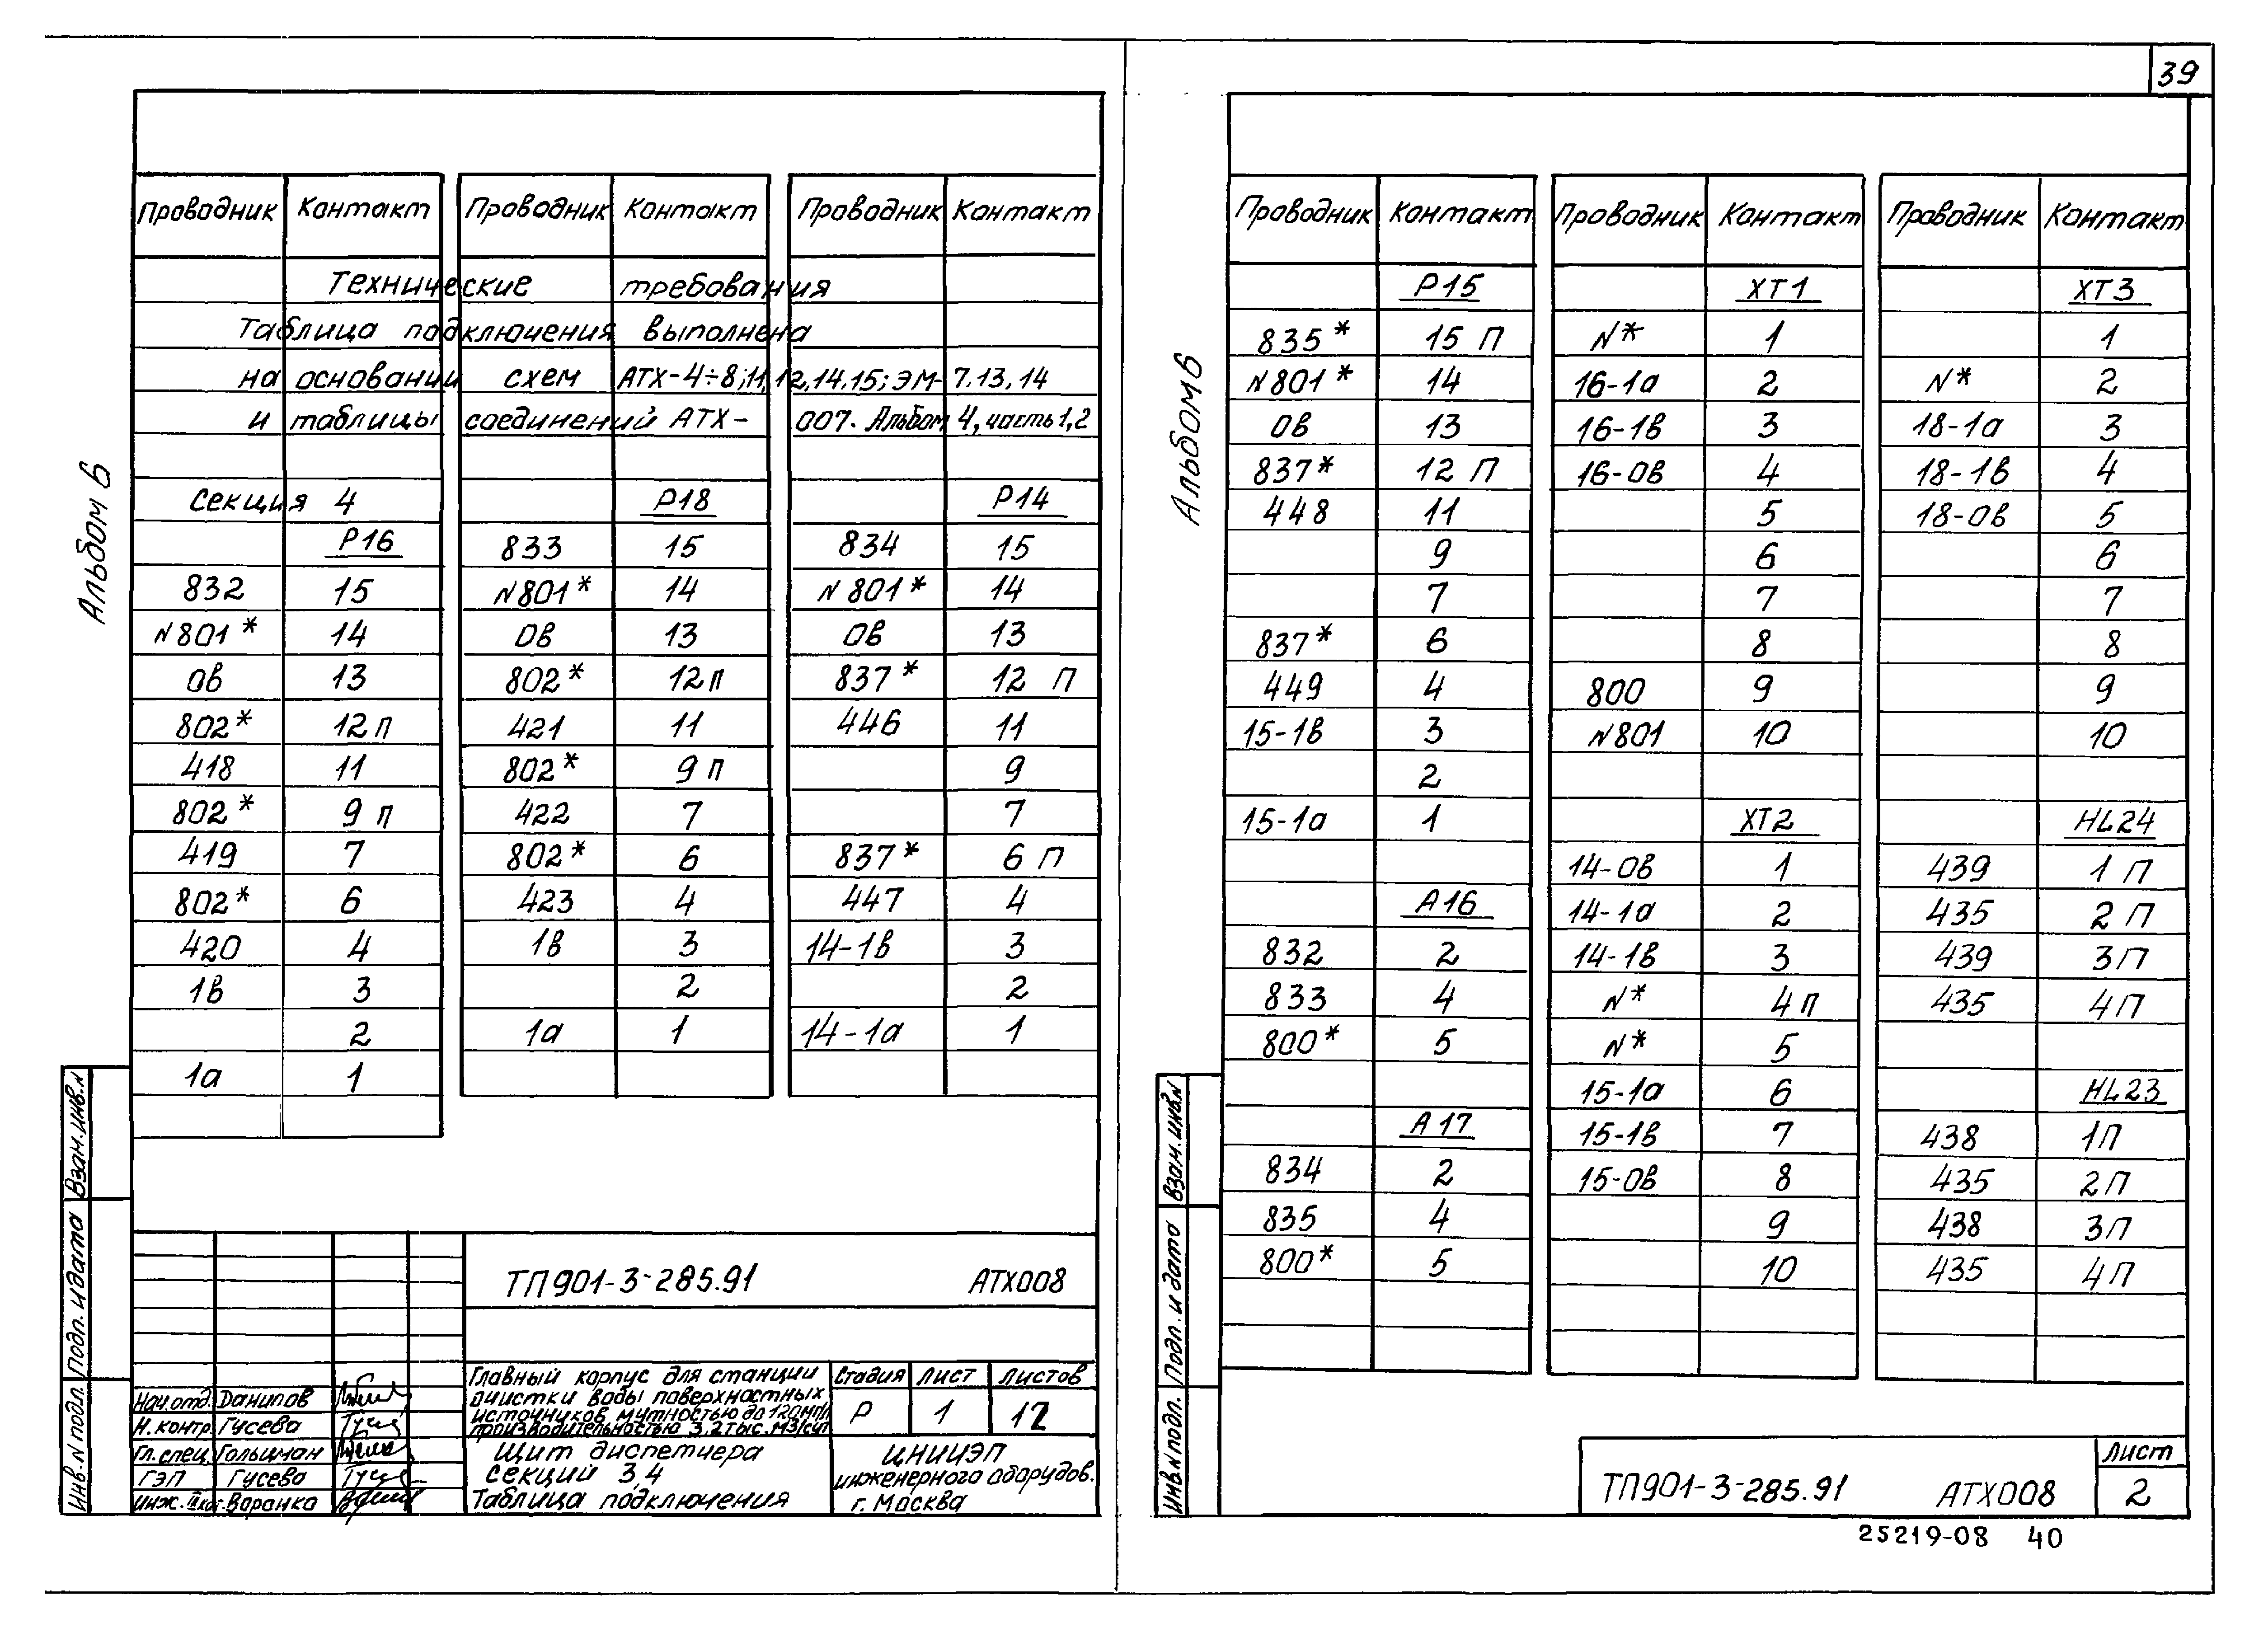 39
Альбом 6
Проводник Контакт Проводник Контакт Проводник Контакт
Технические требования
Таблица подключения выполнена
на основании схем АТХ-4÷8;11,12,14,15; ЭМ-7,13,14
и таблицы соединений АТХ-007. Альбом 4, часть 1,2
Секция 4 Р18 Р14
Р16 833 15 834 15
832 15 N801* 14 N801* 14
N801* 14 0в 13 0в 13
0в 13 802* 12п 837* 12 П
802* 12п 421 11 446 11
418 11 802* 9 п 9
802* 9 п 422 7 7
419 7 802* 6 837* 6 П
802* 6 423 4 447 4
420 4 1в 3 14-1в 3
1в 3 2 2
2 1а 1 14-1а 1
1а 1
Взам.инв.N
Подп. и дата
Инв.N подл.
ТП901-3-285.91 АТХ008
Главный корпус для станции
очистки воды поверхностных
источников мутностью до 120мг/л
производительностью 3,2тыс.м3/сут
Стадия Лист Листов
Р 1 12
Нач.отд. Данилов
Н.контр. Гусева
Гл.спец. Гольцман
ГЭП Гусева
Инж. Воранка
Щит диспетчера
секций 3,4
Таблица подключения
ЦНИИЭП
инженерного оборудов.
г. Москва
Альбом 6
Проводник Контакт Проводник Контакт Проводник Контакт
Р15 ХТ1 ХТ3
835* 15 П N* 1 1
N801* 14 16-1а 2 N* 2
0в 13 16-1в 3 18-1а 3
837* 12 П 16-0в 4 18-1в 4
448 11 5 18-0в 5
9 6 6
7 7 7
837* 6 8 8
449 4 800 9 9
15-1в 3 N801 10 10
2
15-1а 1 ХТ2 HL24
14-0в 1 439 1 П
А16 14-1а 2 435 2 П
832 2 14-1в 3 439 3П
833 4 N* 4 п 435 4П
800* 5 N* 5
15-1а 6 HL23
А17 15-1в 7 438 1П
834 2 15-0в 8 435 2П
835 4 9 438 3П
800* 5 10 435 4П
Взам.инв.N
Подп. и дата
Инв.N подл.
ТП901-3-285.91 АТХ008
Лист
2
25219-08 40